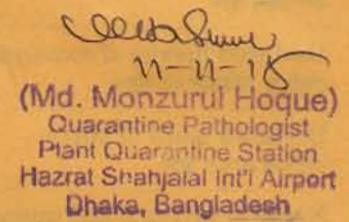 11-11-15
(Md. Monzurul Hoque)
Quarantine Pathologist
Plant Quarantine Station
Hazrat Shahjalal Int'l Airport
Dhaka, Bangladesh